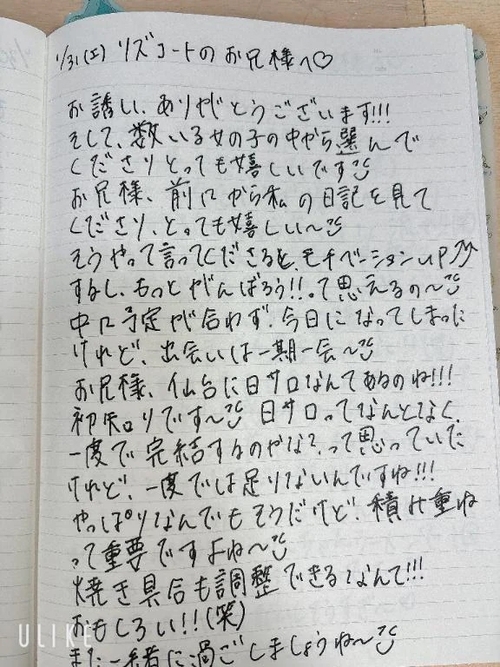 1/31(土) リズコートのお兄様へ♡
お誘い、ありがとうございます!!!
そして、数いる女の子の中から選んで
くださりとっても嬉しいです
お兄様、前にから私の日記を見て
くださり、とっても嬉しい〜
そうやって言ってくださると、モチベーションUP
するし、もっとがんばろう!!って思えるの〜
中々予定が合わず、今日になってしまった
けれど、出会いは一期一会〜
お兄様、仙台に日サロなんてあるのね!!!
初知りです〜 日サロってなんとなく、
一度で完結するのかな?、って思っていた
けれど、一度では足りないんですね!!!
やっぱりなんでもそうだけど、積み重ね
って重要ですよね〜
焼き具合も調整できるなんて!!!
おもしろい!!(笑)
また一緒に過ごしましょうね〜
ULIKE